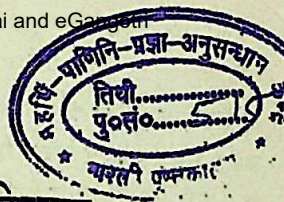 ai and eGangotri
महर्षि-पाणिनि-प्रज्ञा-अनुसन्धान
तिथी..................
पु०सं०............510